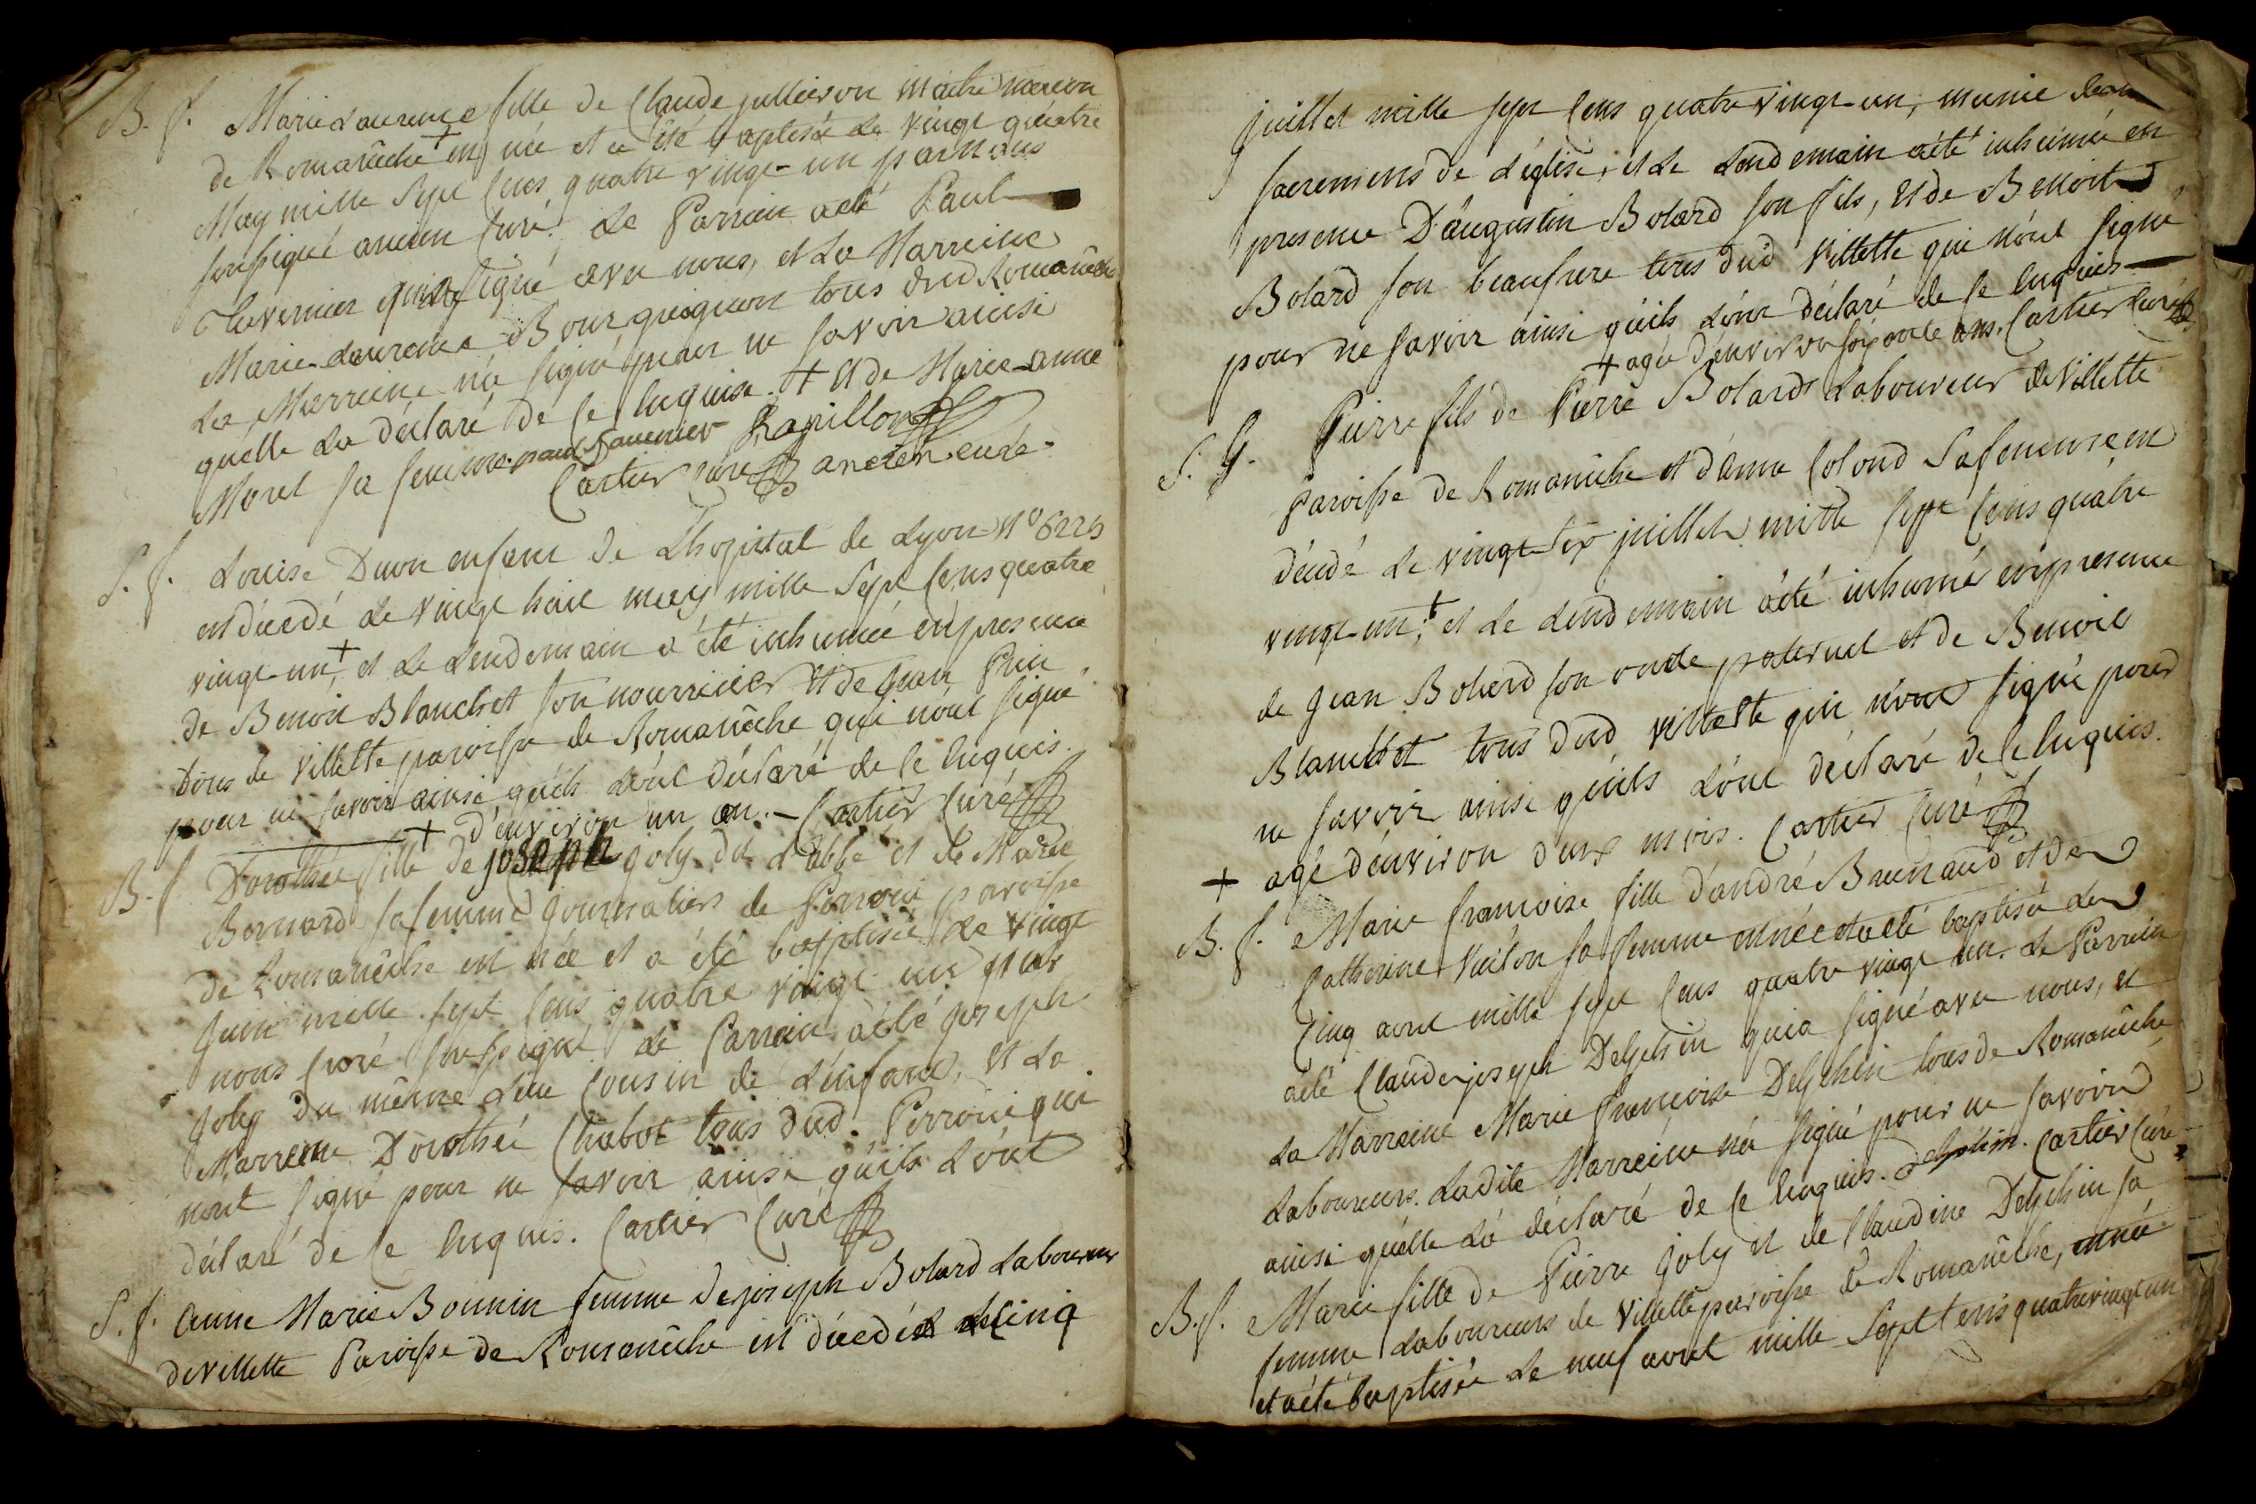 B. f. Marie Laurence fille de Claude jullieron maitre macon
de Romanêche + est née et a été baptisée le vingt quatre
May mille sept cens quatre vingt-un par nous
soussigné ancien Curé. Le Parrain a été Paul
Thevenier qui a signé avec nous, et La Marreine
Marie Laurence Bourguignon tous dud Romanêche
La Marreine n'a signé pour ne savoir ainsi
quelle La déclaré de ce Enquise. + et de Marie-anne
Morel sa femme. paul Papillon
Cartier Curé ancien curé
S. f. Louise Duon enfant de Lhopital de Lyon N° 6223
est décedé Le vingt huit may mille Sept Cens quatre
vingt-un +, et Le Lendemain a été inhumée en presence
de Benoit Blanchet son nourricier et de jean Prin
tous de Villette paroisse de Romanêche qui nônt signé
pour ne savoir ainsi quéils Lônt déclaré de ce Enquis.
+ d'environ un an. - Cartier Curé
B. f. Dorothée fille de joseph joly dit L'abbé et de Marie
Bernard sa femme journaliers de Perroin paroisse
de Romanêche est née et a été baptisée Le vingt
juin mille sept Cens quatre vingt un par
nous Curé soussigné Le Parrein a été joseph
joly du même Lieu Cousin de L'enfant, et La
Marreine Dorothée Chabot tous dud. Perroin qui
nont signé pour ne savoir ainsi quéils Lônt
déclaré de ce Enquis. Cartier Curé
S. f. Anne Marie Bonnin femme de joseph Bolard Laboureur
de villette Paroisse de Romanêche est décedée Le Cinq
juillet mille sept Cens quatre vingt-un, munie des
sacremens de L'église, et Le Lendemain a été inhumée en
presence D'augustin Bolard son fils, et de Benoit
Bolard son beaufrere tous dud Villette qui nônt signé
pour ne savoir ainsi qu'ils Lônt déclaré de ce Enquis
+ agée d'environ soixante ans. Cartier Curé
S. G. Pierre fils de Pierre Bolard Laboureur de Villette
Paroisse de Romanêche et d'anne Colond Sa femme est
décédé Le vingt six juillet mille sept Cens quatre
vingt-un, + et Le Lendemain a été inhumé en presence
de jean Bolard son oncle paternel et de Benoit
Blanchet tous dud villette qui nônt signé pour
ne savoir ainsi quéils Lônt déclaré de ce Enquis.
+ agé d'environ deux mois. Cartier Curé
B. f. Marie francoise fille d'andré Brunaud et de
Catherine Vuiton sa femme est née et a été baptisée Le
Cinq aout mille sept Cens quatre vingt un. Le Parrein
a été Claude joseph Delphin qui a signé avec nous, et
La Marreine Marie francoise Delphin tous de Romanêche
Laboureurs. Ladite Marreine n'a signé pour ne savoir
ainsi quélle L'a déclaré de ce Enquis. delphin. Cartier Curé
B. f. Marie fille de Pierre joly et de Claudine Delphin sa
femme Laboureurs de Villette paroisse de Romanêche, est née
et a été baptisée Le neuf aout mille Sept Cens quatre vingt un